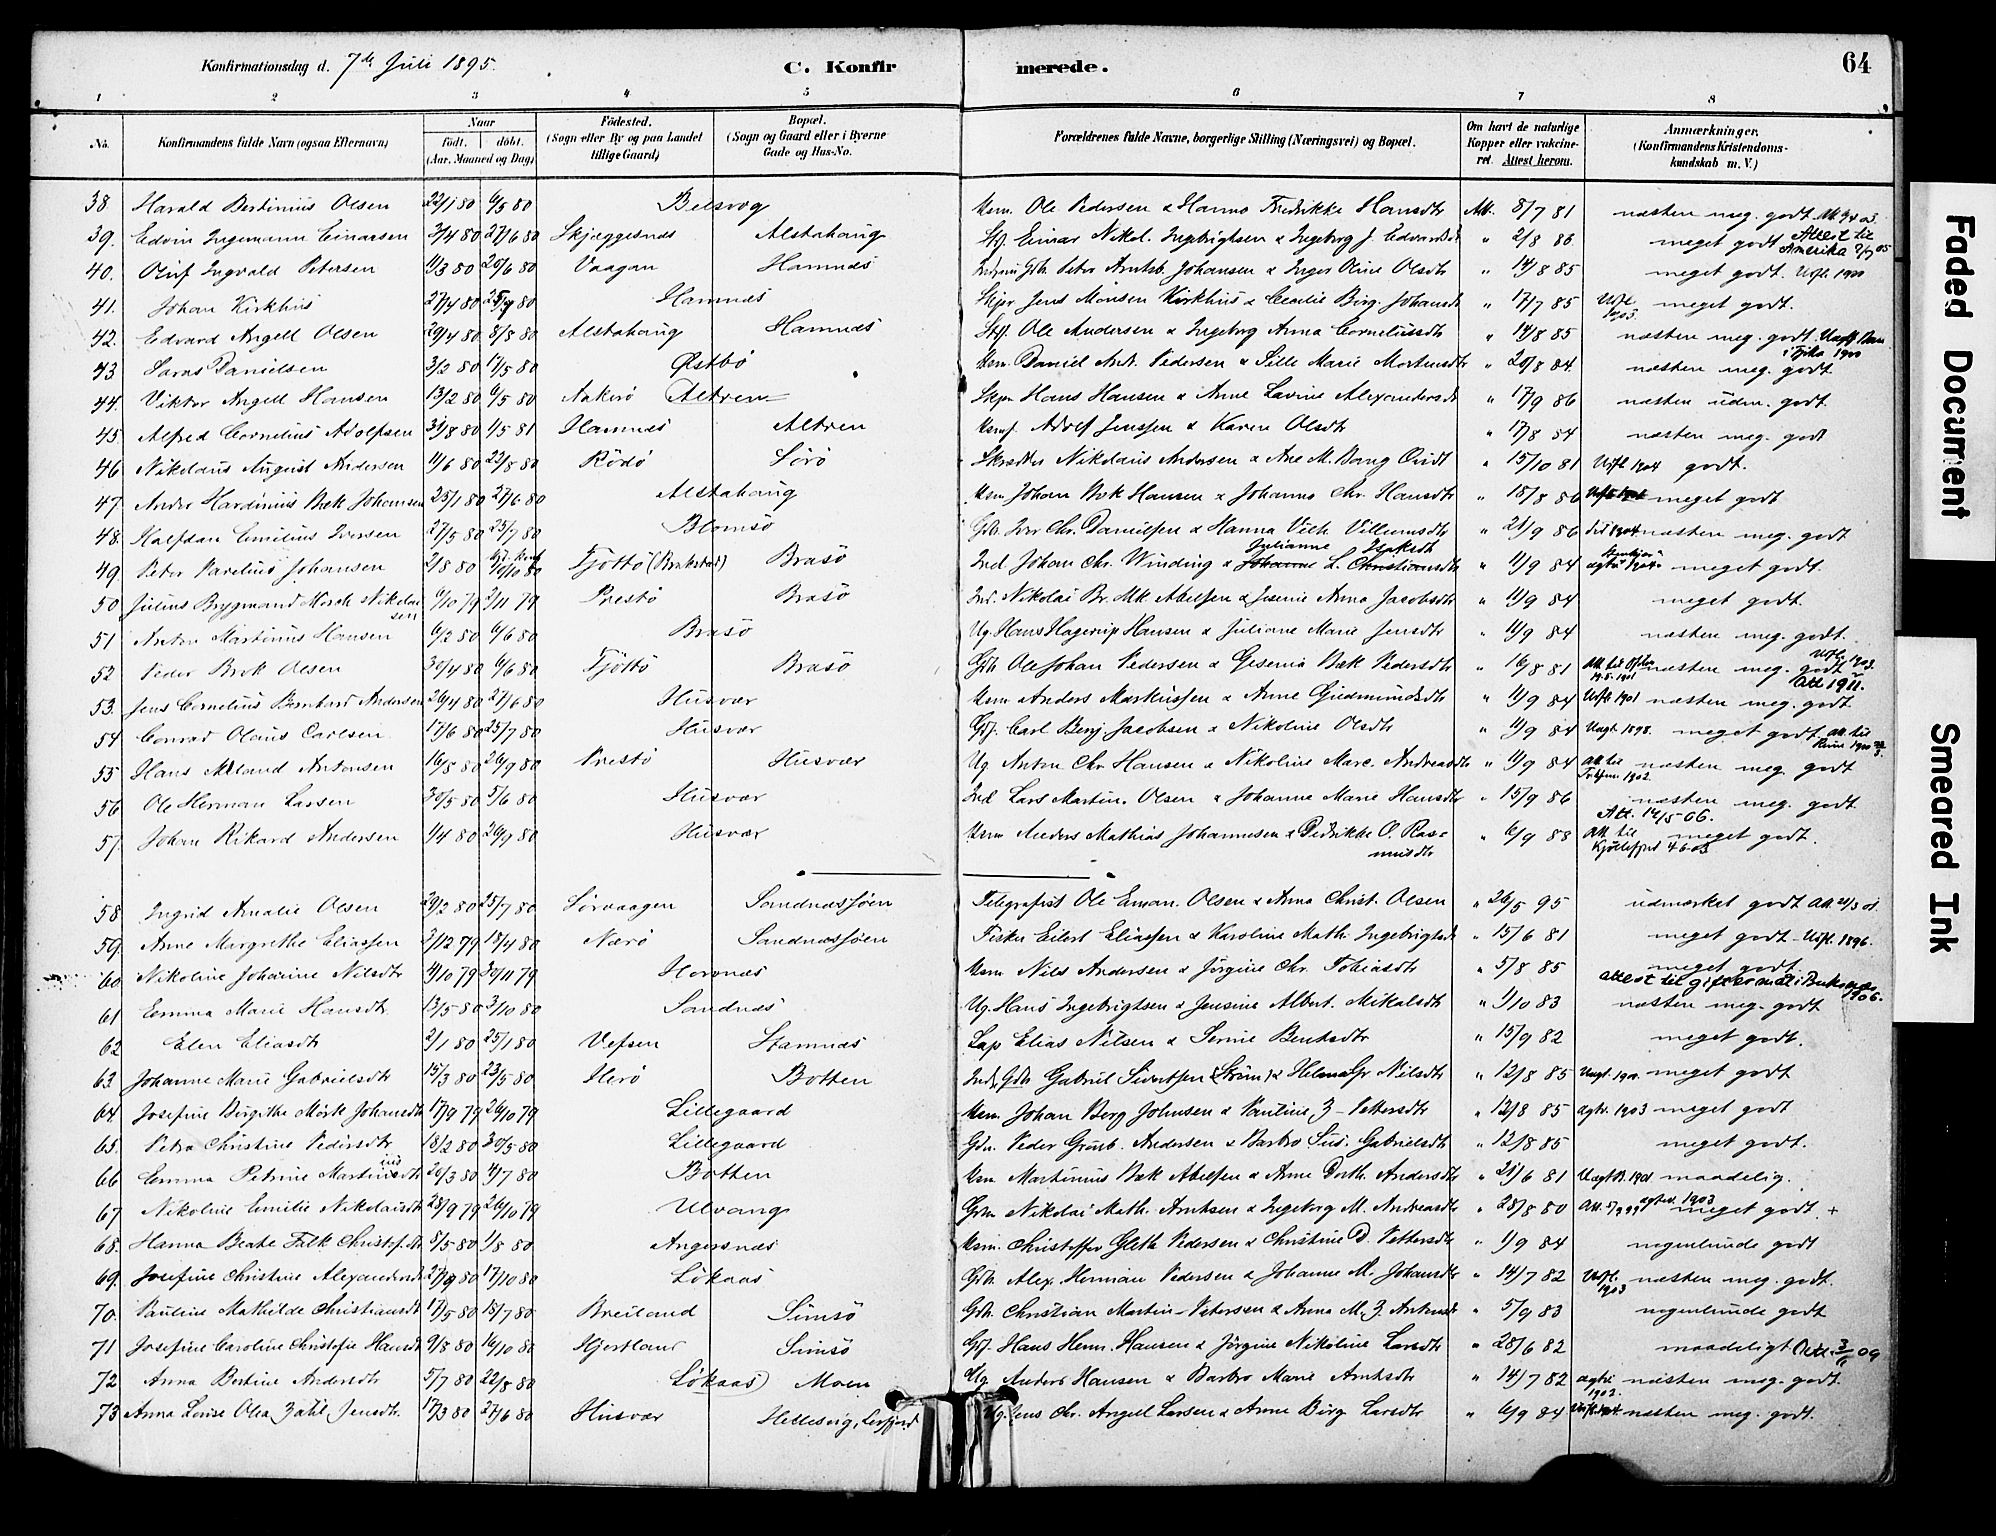 Konfirmationsdag d. 7de Juli 1895.
C. Konfirmerede.
64
1 2 3 4 5 6 7 8
No. Konfirmandens fulde Navn (ogsaa Efternavn) Naar født. døbt. (Aar, Maaned og Dag) Fødested. (Sogn eller By og paa Landet tillige Gaard) Bopæl. (Sogn og Gaard eller i Byerne Gade og Hus-No. Forældrenes fulde Navne, borgerlige Stilling (Næringsvei) og Bopæl. Om havt de naturlige Kopper eller vakcineret. Attest herom. Anmærkninger. (Konfirmandens Kristendomskundskab m. V.)
38 Harald Bertinius Olsen 22/1 80 6/5 80 Belsvåg Ole Pedersen & Hanna Fredrikke Hansdtr Att. 8/7 81 næsten meg. godt
39. Edvin Ingemann Einarsen 3/4 80 27/6 80 Skjæggesnes Alstahaug Einar Nikol. Ingebrigtsen & Ingeborg J. " 2/8 86 meget godt Attest til Amerika
40. Oluf Ingvald Petersen 11/3 80 20/6 80 Vaagan Hamnes Peter Arntsb. Johansen & Inger Oline Olsdtr " 14/8 85 meget godt. Utfl. 1900
41. Johan Kirkhus 27/4 80 Hamnes Jens Monsen Kirkhus & Cecilie Birg. Johansdtr " 17/7 85 Utfl. 1903 meget godt.
42. Edvard Angell Olsen 29/4 80 8/8 80 Alstahaug Hamnes Ole Andersen & Ingeborg Anna Corneliusdtr " 14/8 85 næsten meg. godt.
43 Daras Danielsen 3/2 80 17/5 80 Østbö Daniel Andr. Pedersen & Sille Marie Mortensdtr " 20/8 84. næsten meg. godt
44. Viktor Angell Hansen 13/2 80 6/5 80 Altren Hans Hansen & Anne Lavine Alexandersdtr " 17/9 86 næsten udm. godt
45. Alfred Cornelius Adolfsen 31/8 80 1/5 81 Hamnes Altren Adolf Jenssen & Karen Olsdtr " 17/8 84 næsten meg. godt
46 Nikolaus August Andersen 11/6 80 22/8 80 Rödö Sörö Nikolaus Andersen & Ane M. Bang " 15/10 81 Utfl 1904 godt.
47. Hardinius Bæk Johansen 25/1 80 27/6 80 Alstahaug Johan Bæk Hansen & Johanna Chr. Hansdtr " 18/8 86 meget godt
48. Halfdan Emilius Iversen 27/5 80 25/7 80 Blomsö Iver Chr. Danielsen & Hanna Vilh. Villumsdtr " 21/9 86 næsten meg. godt
49 Peter Parelius Johansen 2/8 80 Tjöttö Brasö Ind. Johan Chr. Winding & Julianne " 11/9 84 meget godt.
50 Julius Brygmand Nikolaisen 6/10 79 2/11 79 Prestö Brasö Ind. Nikolai Br. Abelsen & Jesenie Anna Jacobsdtr " 11/9 84 meget godt.
51 Anton Martinus Hansen 6/2 80 6/6 80 Brasö Ug. Hans Hagerup Hansen & Juliane Marie Jensdtr " 11/9 84 næsten meg. godt.
52 Peder Brok Olsen 30/4 80 6/6 80 Tjöttö Brasö Ole Johan Pedersen & Gesenia Bæk Pedersdtr " 16/8 81 næsten meg. godt Utfl. 1903. Att 1911.
53. Jens Cornelius Bernhard Andersen 26/4 80 27/6 80 Husvær Anders Markussen & Anne Gudmundsdtr " 11/9 84 Utfl. 1901 næsten meg. godt
54 Conrad Olaus Carlsen 17/6 80 25/7 80 Husvær Carl Benj. Jacobsen & Nikoline Olsdtr " 11/9 84 1898. meget godt
55 Hans Meland Antonsen 16/5 80 26/9 80 Prestö Husvær Ug Anton Chr Hansen & Nikoline Marc. Andreasdtr " 11/9 84 næsten meg. godt
56 Ole Herman Larsen 30/5 80 5/6 80 Husvær Ind Lars Martin. Olsen & Johanna Marie Hansdtr " 15/9 86 næsten meg. godt. Att. 14/5-06.
57. Johan Rikard Andersen 1/4 80 26/9 80 Husvær Anders Mathias Johannesen & Fredrikke O. Rasmusdtr " 6/9 83 Att. til Kjöllefjord 4-6-03 meget godt.
58. Ingrid Amalie Olsen 29/2 80 25/7 80 Sörvaagen Sandnessjöen Telegrafist Ole Eman. Olsen & Anna Christ. Olsen " 26/5 95 udmærket godt
59. Anne Margrethe Eliassen 2/12 79 18/4 80 Nærö Sandnessjöen Fisker Eilert Eliassen & Karoline Math. Ingebrigtsdtr " 15/6 81 meget godt - Utfl. 1896.
60 Nikoline Johanne Nilsdtr 4/10 79 30/11 79 Hornnes Nils Andersen & Jörgine Chr. Tobiasdtr " 5/8 85 meget godt attest til giftermål i 1906.
61 Emma Marie Hansdtr. 13/5 80 3/10 80 Sandnes Ug. Hans Ingebrigtsen & Jensine Albert. Mikalsdtr " 1/10 83 næsten meg. godt
62 Elen Eliasdtr 2/1 80 25/1 80 Vefsen Stamnes Lap Elias Nilsen & Sernie Bentsdtr " 15/9 82 meget godt.
63. Johanne Marie Gabrielsdtr 15/3 80 23/5 80 Herö Botten Ind. Gdr Gabriel Sivertsen (Ström) & Helena Gr Nilsdtr " 12/8 85 meget godt
64. Josefine Birgithe Mörk Johansdtr 17/9 79 26/10 79 Lillegaard Johan Berg Johnsen & Pauline Z. Pettersdtr " 12/8 85 1903 meget godt
65. Petra Christine Pedersdtr 18/2 80 30/5 80 Lillegaard Gdr. Peder Grönb. Andersen & Barbro Sus. Gabrielsdtr " 12/8 85 meget godt.
66 Emma Petrine Martinusdtr 20/3 80 4/7 80 Botten Martinus Bæk Abelsen & Anne Dorth. Andersdtr " 21/6 81 maadelig.
67 Nikoline Emilie Nikolaisdtr 28/9 79 26/10 79 Ulvang Nikolai Math. Arntsen & Ingeborg M. Andreasdtr " 28/8 80 1903 meget godt. +
68. Hanna Beate Falk Christof.dtr 8/5 80 1/8 80 Angersnes Christoffer Gleth Pedersen & Christine D. Pettersdtr " 1/9 84 nogenlunde godt
69. Josefine Christine Alexandersdtr 17/10 80 Lökaas Gdr. Alex. Herman Pedersen & Johanne M. Johansdtr " 14/7 82 Utfl. 1903 næsten meg. godt.
70. Pauline Mathilde Christiansdt 17/5 80 18/7 80 Breiland Simsö Gdr. Christian Martin Petersen & Anna M. Z. Antonsdt " 5/9 83 nogenlunde godt
71 Josefine Caroline Christofie Hansdt 9/8 80 16/10 80 Hjertland Simsö Hans Henr. Hansen & Jörgine Nikoline Larsdtr " 28/6 82 maadeligt
72 Anna Bertine Andersdtr 5/7 80 22/8 80 Lökaas Moen Ug Anders Hansen & Barbro Marie Arntsdtr " 14/7 82 1902. næsten meg. godt.
73 Anna Lovise Olea Zahl Jensdtr. 17/3 80 27/6 80 Husvær Hellesvig, Leirfjord Jens Chr. Angell Larsen & Anne Birg Larsdtr " 6/9 84 næsten meg. godt.
Faded Document
Smeared Ink